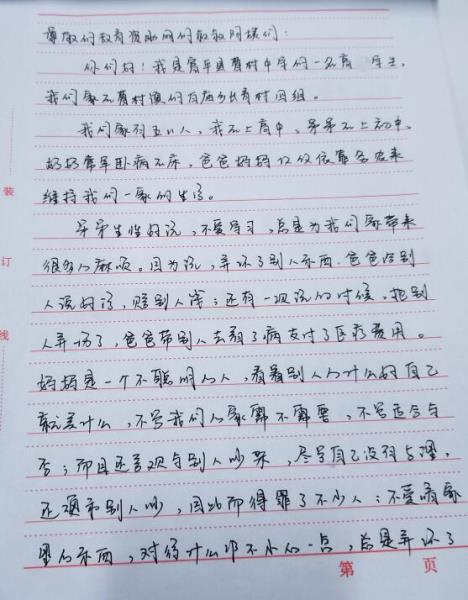 尊敬的教育援助网的叔叔阿姨们:
你们好!我是富平县曹村中学的一名高一学生,
我们家在曹村镇的
我们家有五口人,我在上高中,弟弟在上初中,
奶奶常年卧病在床,爸爸妈妈仅仅依靠务农来
维持我们一家的生活。
弟弟生性好玩,不爱学习,总是为我们家带来
很多的麻烦。因为玩,弄坏了别人东西.爸爸给别
人说好话,赔别人钱;还有一次玩的时候,把别
人弄伤了,爸爸带别人去看了病支付了医疗费用。
妈妈是一个不聪明的人,看着别人的什么好自己
就买什么,不管我们的家需不需要,不管适合与
否;而且还喜欢与别人吵架,尽管自己没有道理,
还要和别人吵,因此而得罪了不少人;不爱惜家
里的东西,对待什么都不小心一点,总是弄坏了
装
订
线
第 页